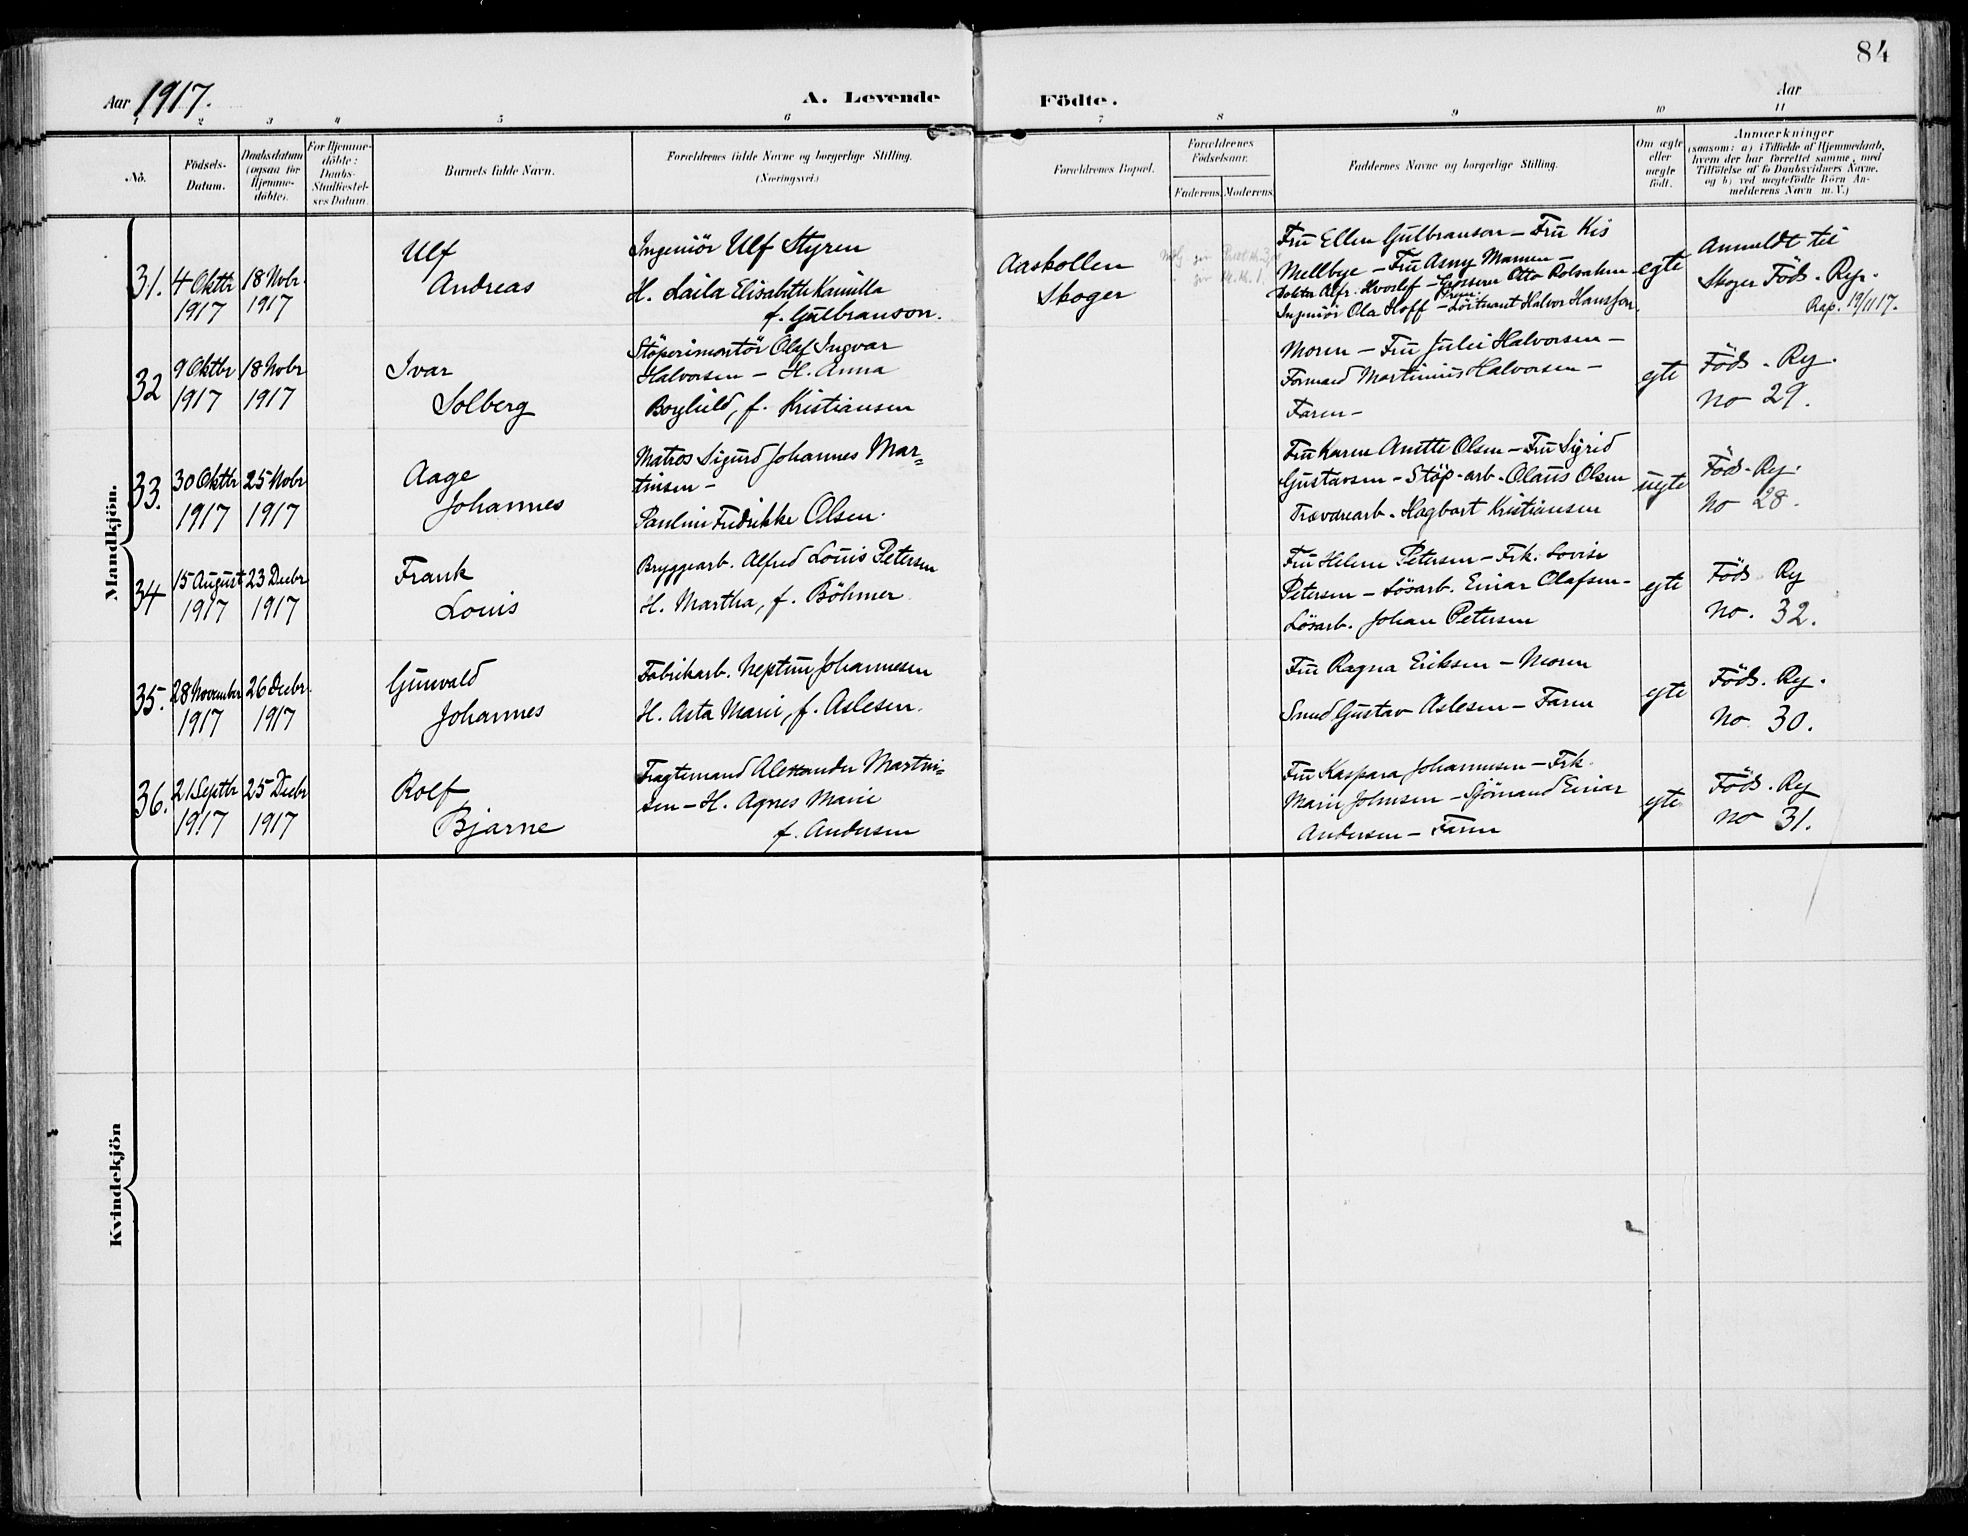 84
Aar 1917.
A. Levende
Födte.
Aar
1 2 3 4 5 6 7 8 9 10 11
No.
Födsels-
Datum.
Daabsdatum
(ogsaa for
Hjemme-
döbte).
For Hjemme-
döbte:
Daabs-
Stadfæstel-
ses Datum.
Barnets fulde Navn.
Forældrenes fulde Navne og borgerlige Stilling.
(Næringsvei.)
Forældrenes Bopæl.
Forældrenes
Födselsaar.
Faderens.
Moderens.
Faddernes Navne og borgerlige Stilling.
Om ægte
eller
uægte
födt.
Anmærkninger
(saasom: a) i Tilfælde af Hjemmedaab,
hvem der har forrettet samme, med
Tilföielse af to Daabsvidners Navne,
og b) ved uægtefödte Börn An-
melderens Navn m. V.)
Mandkjön.
31.
4 Oktbr
1917
18 Novbr
1917
Ulf
Andreas
Ingeniör Ulf Styren
H. Laila Elisabeth Kamilla
f. Gulbranson.
Aaskollen
Skoger
Fru Ellen Gulbranson – Fru Kis
Mellbye – Fru Asny Mamen –
Doktor Alfr. Hvoslef – Grosserer Otto
Ingeniör Ola Hoff – Prem. Löitnant Halvor Hansson.
egte
Anmeldt til
Skoger Föds. Reg.
Rap. 19/11 17.
32
9 Oktbr
1917
18 Novbr
1917
Ivar
Solberg
Stöperimontör Olaf Ingvar
Halvorsen – H. Anna
Boghild, f. Kristiansen
Moren – Fru Julie Halvorsen –
Formand Martinius Halvorsen –
Faren –
egte
Föds. Reg.
No 29.
33.
30 Oktbr
1917
25 Novbr
1917
Aage
Johannes
Matros Sigurd Johannes Mar=
tinsen –
Pauline Fredrikke Olsen.
Fru Karen Anette Olsen – Fru Sigrid
Gustavsen – Stöp-arb. Olaus Olsen
Trævarearb. Hagbart Kristiansen
uegte
Föds. Reg.
No 28.
34
15 August
1917
23 Decbr
1917
Frank
Louis
Bryggearb. Alfred Louis Petersen
H. Martha, f. Böhmer
Fru Helene Petersen – Frk. Lovise
Petersen – Lösarb. Einar Olafsen –
Lösarb. Johan Petersen
egte
Föds Reg
No. 32.
35.
28 November
1917
26 Decbr.
1917
Gunvald
Johannes
Fabrikarb. Neptun Johannesen
H. Asta Marie, f. Aslesen.
Fru Ragna Eriksen – Moren
Smed Gustav Aslesen – Faren
egte
Föds. Reg.
No 30.
36.
21 Septbr
1917
25 Decbr
1917
Rolf
Bjarne
Fragtemand Alexander Martin-
sen – H. Agnes Marie
f. Andersen
Fru Kaspara Johannesen – Frk.
Marie Johnsen – Sjömand Einar
Andersen – Faren
egte
Föds. Reg
No 31.
Kvindekjön